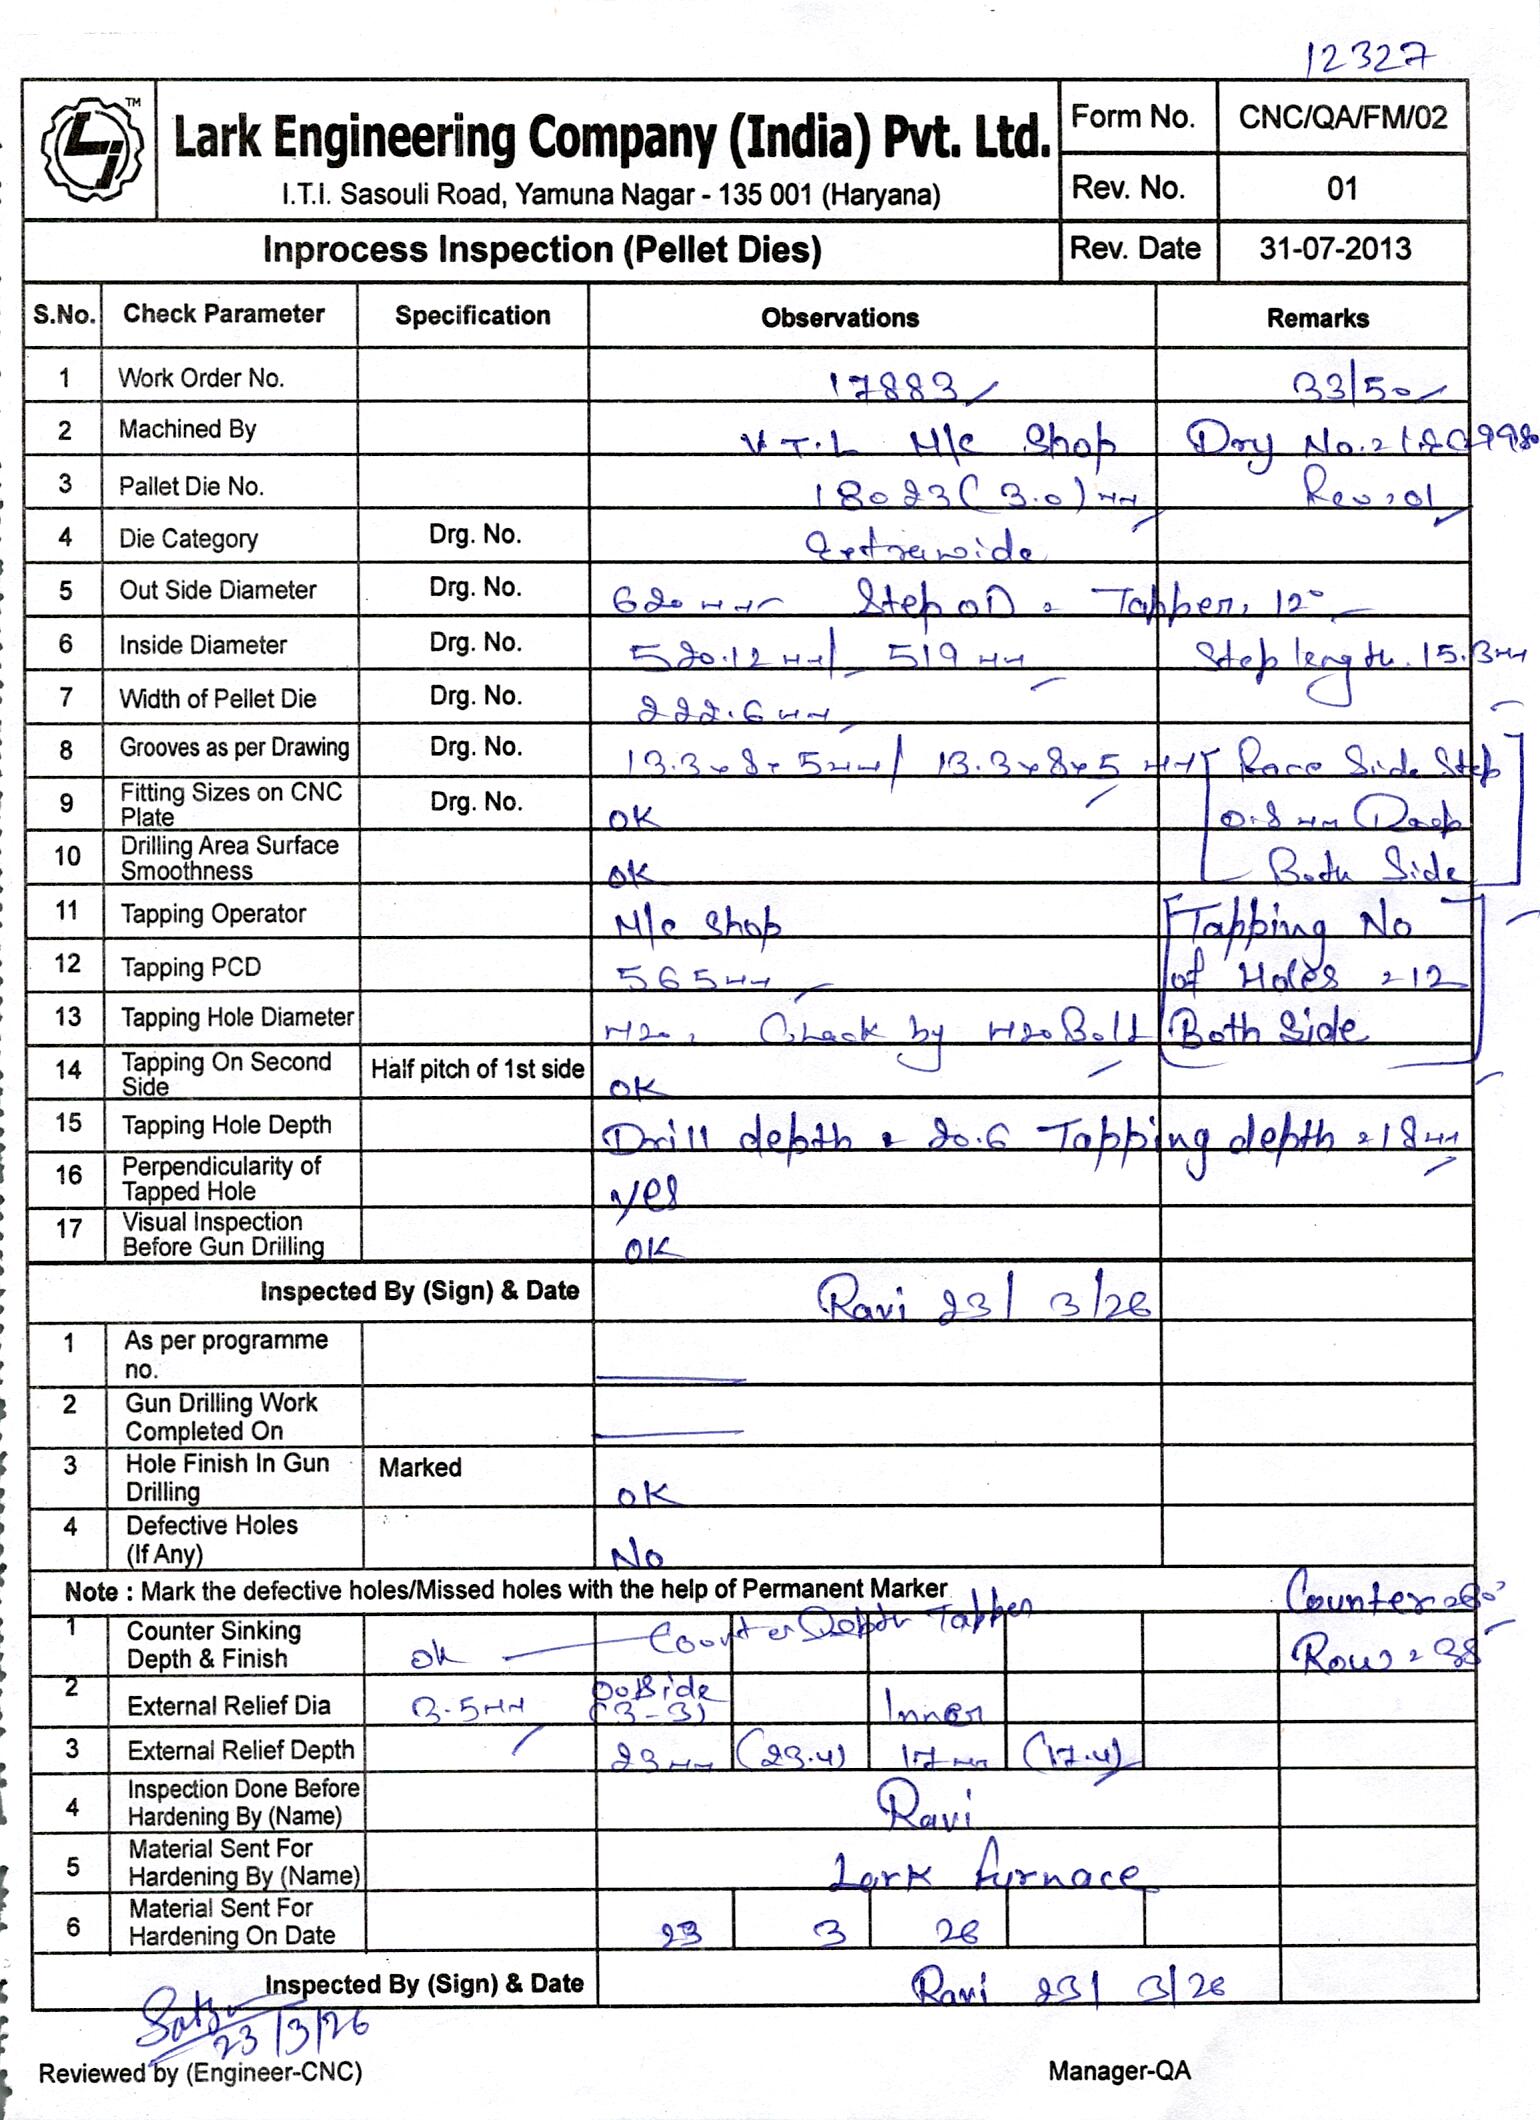 12327
TM
Lark Engineering Company (India) Pvt. Ltd.
I.T.I. Sasouli Road, Yamuna Nagar - 135 001 (Haryana)
Form No. CNC/QA/FM/02
Rev. No. 01
Inprocess Inspection (Pellet Dies) Rev. Date 31-07-2013
S.No. Check Parameter Specification Observations Remarks
1 Work Order No. 17883 33/50
2 Machined By V.T.L M/c Shop
3 Pallet Die No. 18023 (3.0) Rev:01
4 Die Category Drg. No. Extrawide
5 Out Side Diameter Drg. No. 620 mm Step OD = Tapper, 12°
6 Inside Diameter Drg. No. 520.12 mm/ 519 mm Step length. 15.3mm
7 Width of Pellet Die Drg. No. 222.6 mm
8 Grooves as per Drawing Drg. No. 13.3x8x5mm/ 13.3x8x5 mm Race Side Step
9 Fitting Sizes on CNC Plate Drg. No. OK 0.8 mm Deep
10 Drilling Area Surface Smoothness OK Both Side
11 Tapping Operator M/c Shop Tapping No
12 Tapping PCD 565mm of Holes = 12
13 Tapping Hole Diameter M20, Check by M20 Bolt Both Side
14 Tapping On Second Side Half pitch of 1st side OK
15 Tapping Hole Depth Drill depth = 20.6 Tapping depth = 18mm
16 Perpendicularity of Tapped Hole yes
17 Visual Inspection Before Gun Drilling OK
Inspected By (Sign) & Date Ravi 23/3/26
1 As per programme no.
2 Gun Drilling Work Completed On
3 Hole Finish In Gun Drilling Marked OK
4 Defective Holes (If Any) No
Note : Mark the defective holes/Missed holes with the help of Permanent Marker Counter = 60°
1 Counter Sinking Depth & Finish OK Counter Depth Tapper Row = 38
2 External Relief Dia 3.5mm (3-3) Inner
3 External Relief Depth 23mm (23.4) 17mm (17.4)
4 Inspection Done Before Hardening By (Name) Ravi
5 Material Sent For Hardening By (Name) Lark furnace
6 Material Sent For Hardening On Date 23 3 26
Inspected By (Sign) & Date Ravi 23/3/26
23/3/26
Reviewed by (Engineer-CNC) Manager-QA